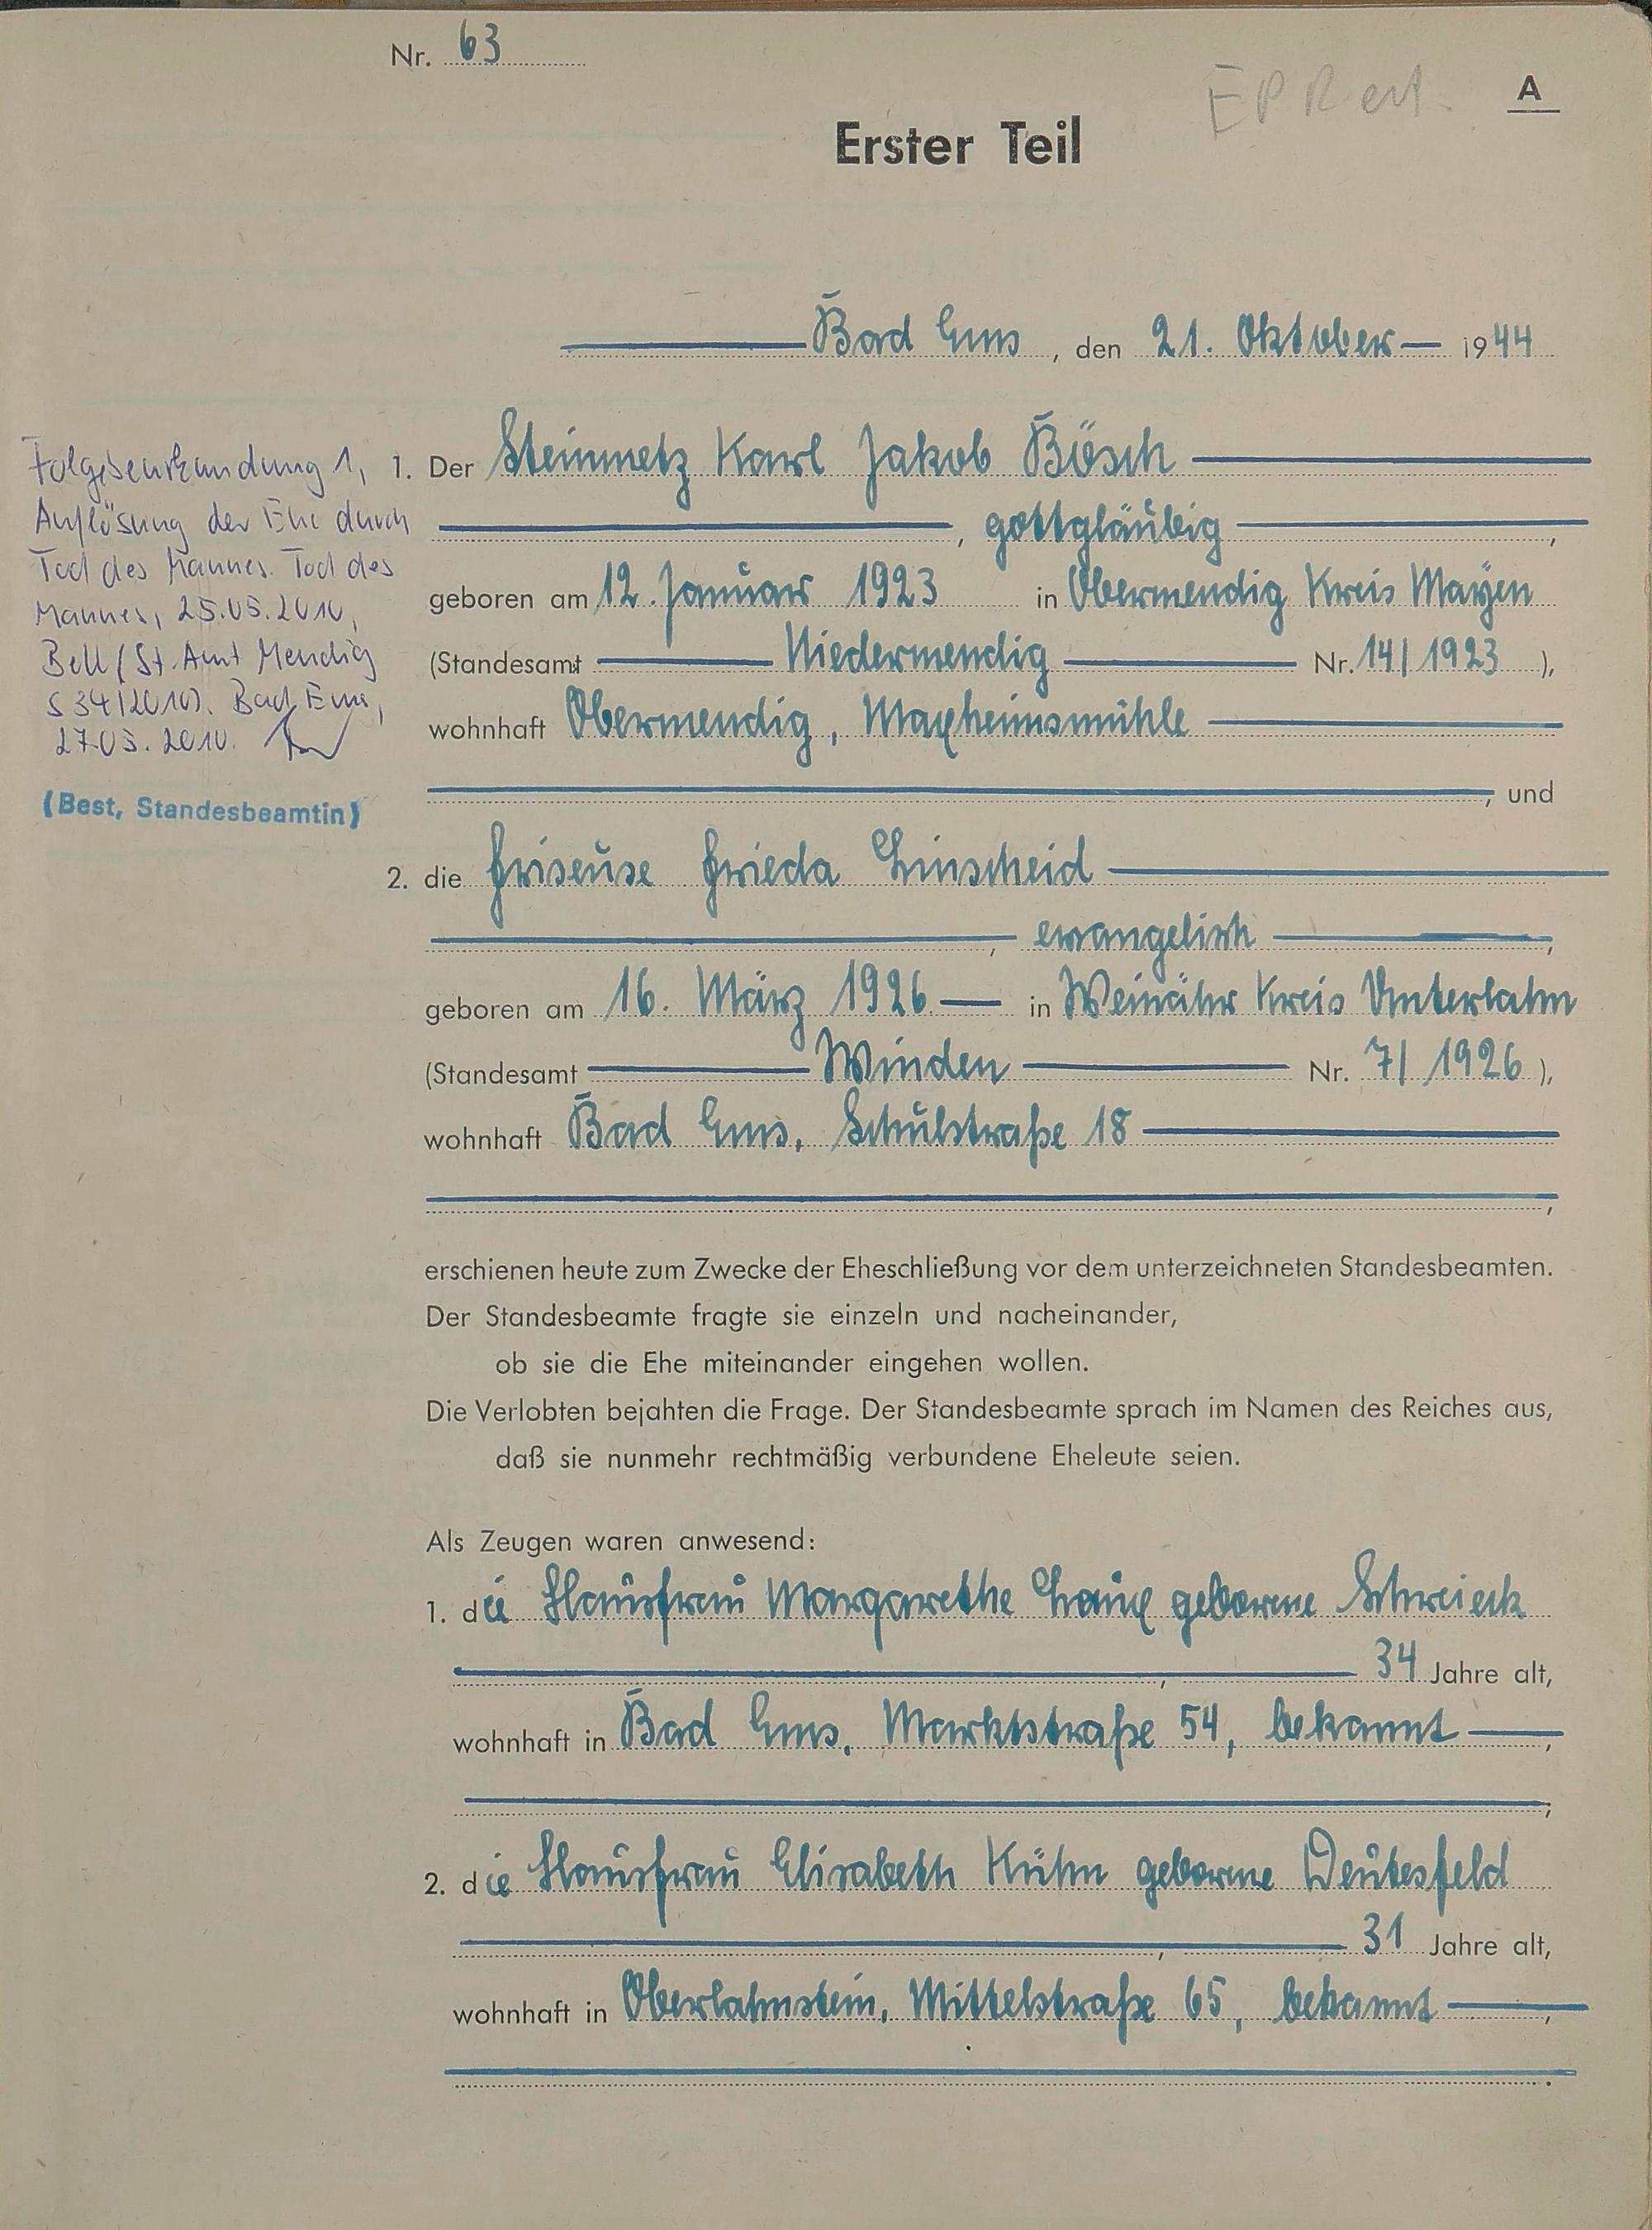 Nr. 63
EPR erl.
A
Erster Teil
Bad Ems, den 21. Oktober 1944
Folgebeurkundung 1,
Auflösung der Ehe durch
Tod des Mannes. Tod des
Mannes, 25.05.2010,
Bell (St. Amt Mendig
S 34/2010). Bad Ems,
27.05.2010.
(Best, Standesbeamtin)
1. Der Steinmetz Karl Jakob Bösch
, gottgläubig,
geboren am 12. Januar 1923 in Obermendig Kreis Mayen
(Standesamt Niedermendig Nr. 14/1923),
wohnhaft Obermendig, Mayheimsmühle
, und
2. die Friseuse Frieda Linscheid
, evangelisch,
geboren am 16. März 1926 in Weinähr Kreis Unterlahn
(Standesamt Winden Nr. 7/1926),
wohnhaft Bad Ems, Schulstraße 18
,
erschienen heute zum Zwecke der Eheschließung vor dem unterzeichneten Standesbeamten.
Der Standesbeamte fragte sie einzeln und nacheinander,
ob sie die Ehe miteinander eingehen wollen.
Die Verlobten bejahten die Frage. Der Standesbeamte sprach im Namen des Reiches aus,
daß sie nunmehr rechtmäßig verbundene Eheleute seien.
Als Zeugen waren anwesend:
1. die Hausfrau Margarethe Laux geborene Schneieck
, 34 Jahre alt,
wohnhaft in Bad Ems, Marktstraße 54, bekannt,
;
2. die Hausfrau Elisabeth Kühn geborene Deutesfeld
, 31 Jahre alt,
wohnhaft in Oberlahnstein, Mittelstraße 65, bekannt,
.